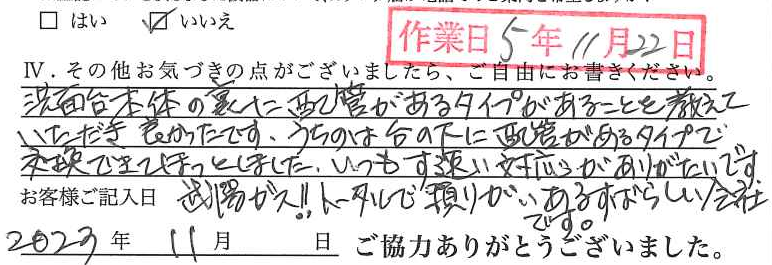 □ はい ☑ いいえ
作業日 5年 11月 22日
Ⅳ．その他お気づきの点がございましたら、ご自由にお書きください。
洗面台本体の裏に配管があるタイプがあることを教えて
いただき良かったです。うちのは台の下に配管があるタイプで
交換できてほっとしました。いつもす速い対応がありがたいです
お客様ご記入日 武陽ガス!!トータルで頼りがいあるすばらしい会社
です。
2023年 11月 日 ご協力ありがとうございました。